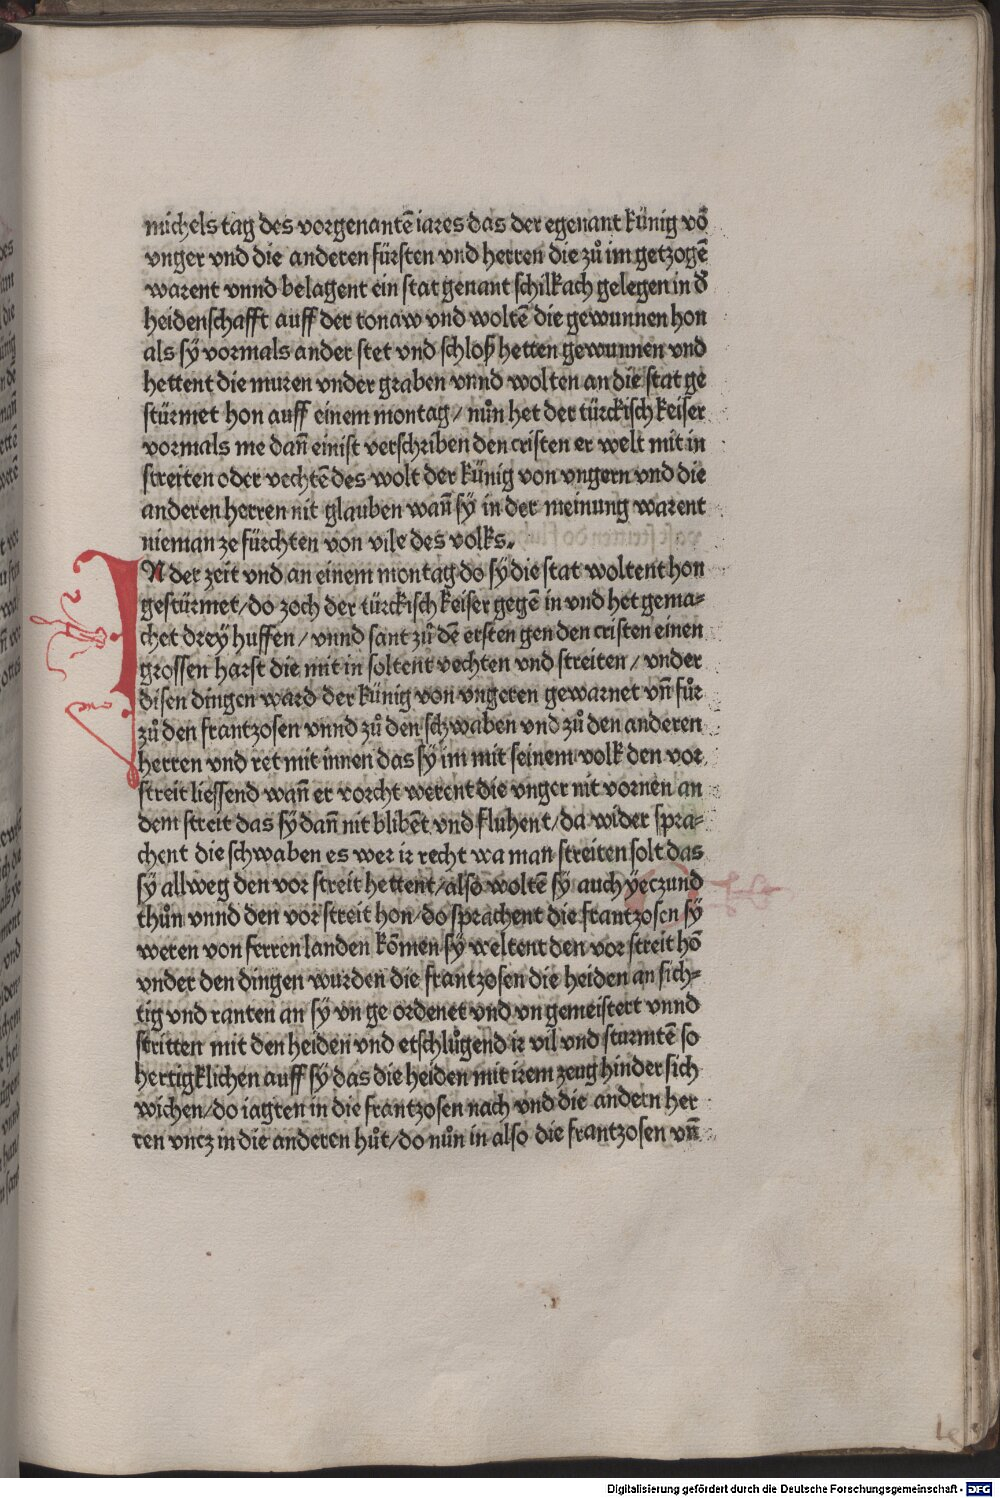 michels tag des vorgenantẽ iares das der egenant künig võ
vnger vnd die anderen fürsten vnd herren die zů im getzogẽ
warent vnnd belagent ein stat genant schilkach gelegen in d̕
heidenschafft auff der tonaw vnd woltẽ die gewunnen hon
als sÿ vormals ander stet vnd schloß hetten gewunnen vnd
hettent die muren vnder graben vnnd wolten an die stat ge
stürmet hon auff einem montag/ nůn het der türckisch keiser
vormals me dañ einist verschriben den cristen er welt mit in
streiten oder vechtẽ des wolt der künig von vngern vnd die
anderen herren nit glauben wañ sÿ in der meinung warent
nieman ze fürchten von vile des volks.
IN der zeit vnd an einem montag do sÿ die stat woltent hon
gestürmet/do zoch der türckisch keiser gegẽ in vnd het gema-
chet dreÿ huffen/ vnnd sant zů dẽ ersten gen den cristen einen
grossen harst die mit in soltent vechten vnd streiten/ vnder
disen dingen ward der künig von vngeren gewarnet vñ fůr
zů den frantzosen vnnd zů den schwaben vnd zů den anderen
herren vnd ret mit innen das sÿ im mit seinem volk den vor
streit liessend wañ er vorcht werent die vnger nit vornen an
dem streit das sÿ dañ nit blibẽt vnd fluhent/da wider spra-
chent die schwaben es wer ir recht wa man streiten solt das
sÿ allweg den vor streit hettent/also woltẽ sÿ auch ÿeczund
thůn vnnd den vor streit hon/do sprachent die frantzosen sÿ
weren von ferren landen kõmen sÿ weltent den vor streit hõ
vnder den dingen wurden die frantzosen die heiden an sich-
tig vnd ranten an sÿ vn ge ordenet vnd vn gemeistert vnnd
stritten mit den heiden vnd etschlůgend ir vil vnd sturmtẽ so
hertigklichen auff sÿ das die heiden mit irem zeug hinder sich
wichen/do iagten in die frantzosen nach vnd die andern her
ren vncz in die anderen hůt/do nůn in also die frantzosen vñ
Digitalisierung gefördert durch die Deutsche Forschungsgemeinschaft - DFG